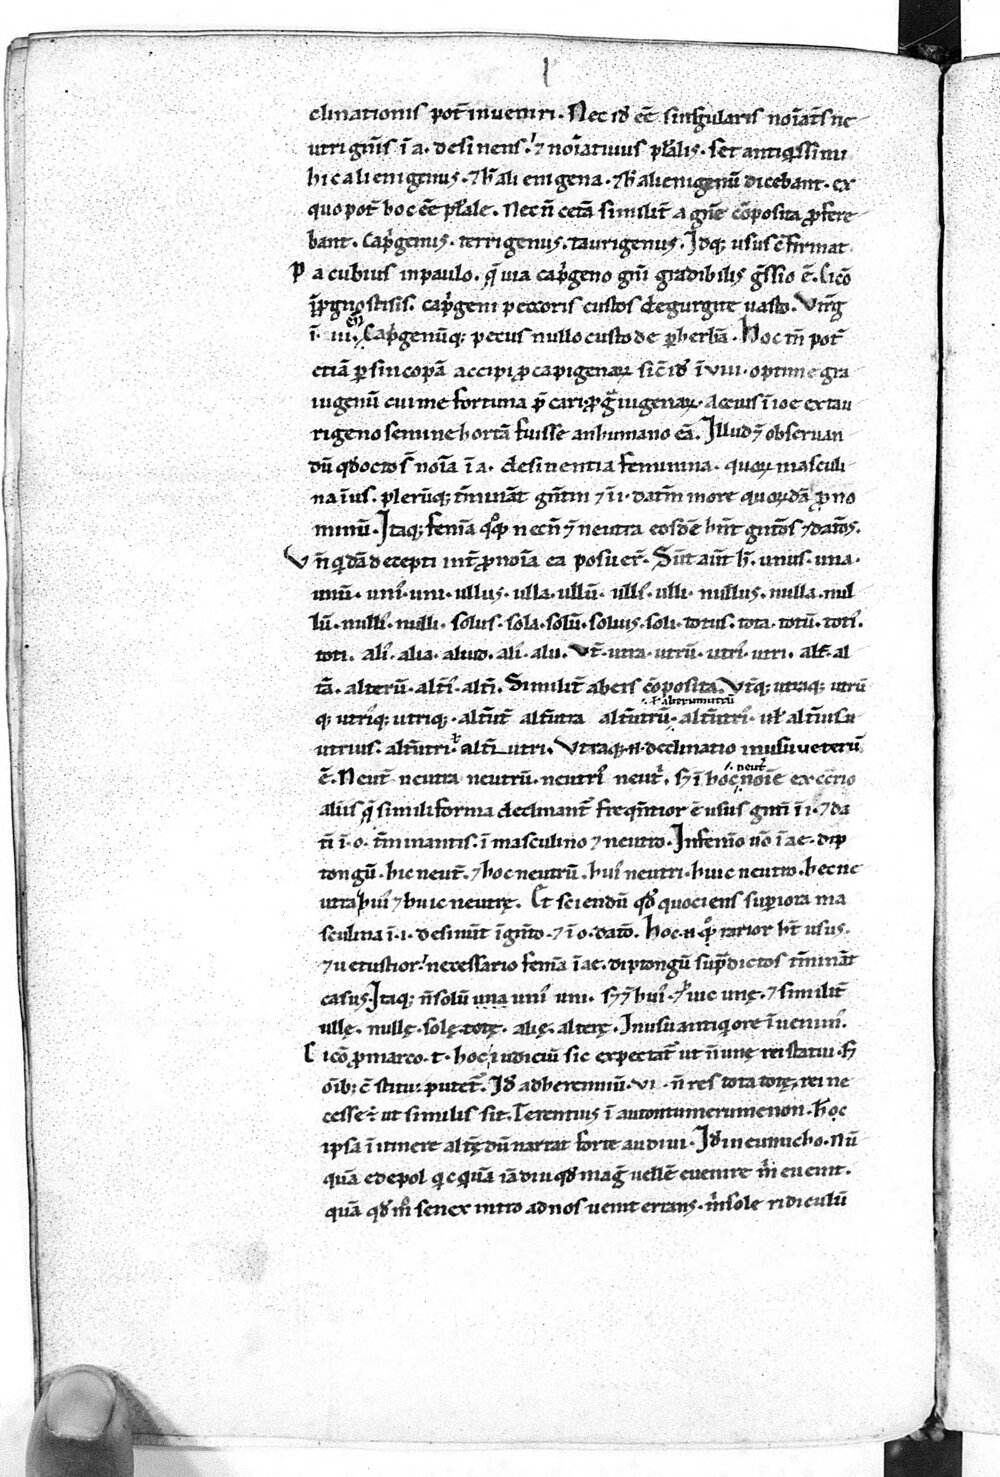 clinationis pot̄ inveniri. Nec id ēē singularis noīat̄s ne
utri gn̄is ī a. desinens. ⁊ noīativus pl̄alis. set antiq̄ssimi
hic alienigenus. ⁊ h̄ alienigena. ⁊ h̄ alienigenū dicebant. ex
quo pot̄ hoc ēē pl̄ale. Nec n̄ cet̄a similit̄ a gn̄e cōposita ꝓfere
bant. capꝛ̄genus. terrigenus. taurigenus. Idq; usus c̄firmat
Pacubius in paulo. q̄ via cap̄geno gn̄i gradibilis ḡssio ē. Cicō
ī ꝓgnostisis. cap̄geni peccoris custos de gurgite vasto. Virḡ
ī. iii. Cap̄genūq; pecus nullo custode ꝑ herbā. Hoc tn̄ pot̄
etiā ꝑ sincopā accipi ꝓ capigenaꝝ sic̄ id ī viii. optime gra
iugenū cui me fortuna p̄cari ꝓ gͣiugenaꝝ. Accius ī ioe ex tau
rigeno semine hortā fuisse an humano eā. Illud ⁊ observan
dū qđ octo s̄ noīa ī a. desinentia feminina. quoꝝ masculi
na īus. plerūq; t̄mināt gn̄tm̄ ⁊ ī i. datm̄ more quoꝛūdā ꝓno
minū. Itaq; femīa q̊q̊ necn̄ ⁊ neutra eosdē hn̄t gnīos ⁊ datōs.
Vn̄ q̄dā decepti int̄ ꝓnoīa ea posuer̄. Sūt aūt h̄. unus. una.
unū. uniꝰ. uni. ullus. ulla. ullū. ulliꝰ. ulli. nullus. nulla. nul
lū. nulliꝰ. nulli. solus. sola. solū. solius. soli. totus. tota. totū. totiꝰ.
toti. aliꝰ. alia. aliud. aliꝰ. alii. Vt̄. utra. utrū. utriꝰ. utri. alt̄. al
t̄a. alterū. alt̄iꝰ. alt̄i. Similit̄ ab eis cōposita. Vt̄q; utraq; utrū
q; utriꝰq; utriq;. alt̄ut̄ alt̄utra alt̄utrū. alt̄utriꝰ. ul̄ alt̄ius u
ul̄ alterumutrū
utrius. alt̄utri. ul̄ alt̄i utri. Vtraq; n̄. declinatio in usu ueterū
ē. Neut̄ neutra neutrū. neutriꝰ neutͥ. S; ī hoc noīe excētio
neut̄
alius q̄ simili forma declinant̄ freq̄ntior ē usus gn̄ti ī i. ⁊ da
ti ī. o. t̄minantis. ī masculino ⁊ neutro. In femīo ūo ī ae. dip
tongū. hic neut̄. ⁊ hoc neutrū. huiꝰ neutri. huic neutro. hec ne
utra huiꝰ ⁊ huic neutrę. Et sciendū qđ quociens sup̄iora ma
sculina ī. i. desinūt ī gn̄to. ⁊ ī o. datō. Hoc n̄ q̊q̊ rarior h̄t usus.
⁊ uetustior. necessario femīa ī ae. diptongū sup̄dictos t̄mināt
casus. Itaq; n̄ solū una uniꝰ uni. S; ⁊ huiꝰ ⁊ huic unę. ⁊ similit̄
ullę. nullę. solę. totę. alię. alterę. In usu antiq̄ore īuenimꝰ.
Cicō ꝓ marco. t. hoc iudiciū sic expectat̄ ut n̄ unę rei statui. S;
oīb; c̄stitui putet̄. Id ad herenniū. vi. n̄ res tota totę rei ne
cesse ē ut similis sit. Terentius ī autontumerumenon. hoc
ipsa ī itinere alt̄ę dū narrat forte audivi. Id in eunucho. Nū
quā edepol q̄cquā iā diu qđ maḡ vellē evenire m̄ evenit.
quā qđ m̊ senex intro ad nos venit errans. m̄ sole ridiculū